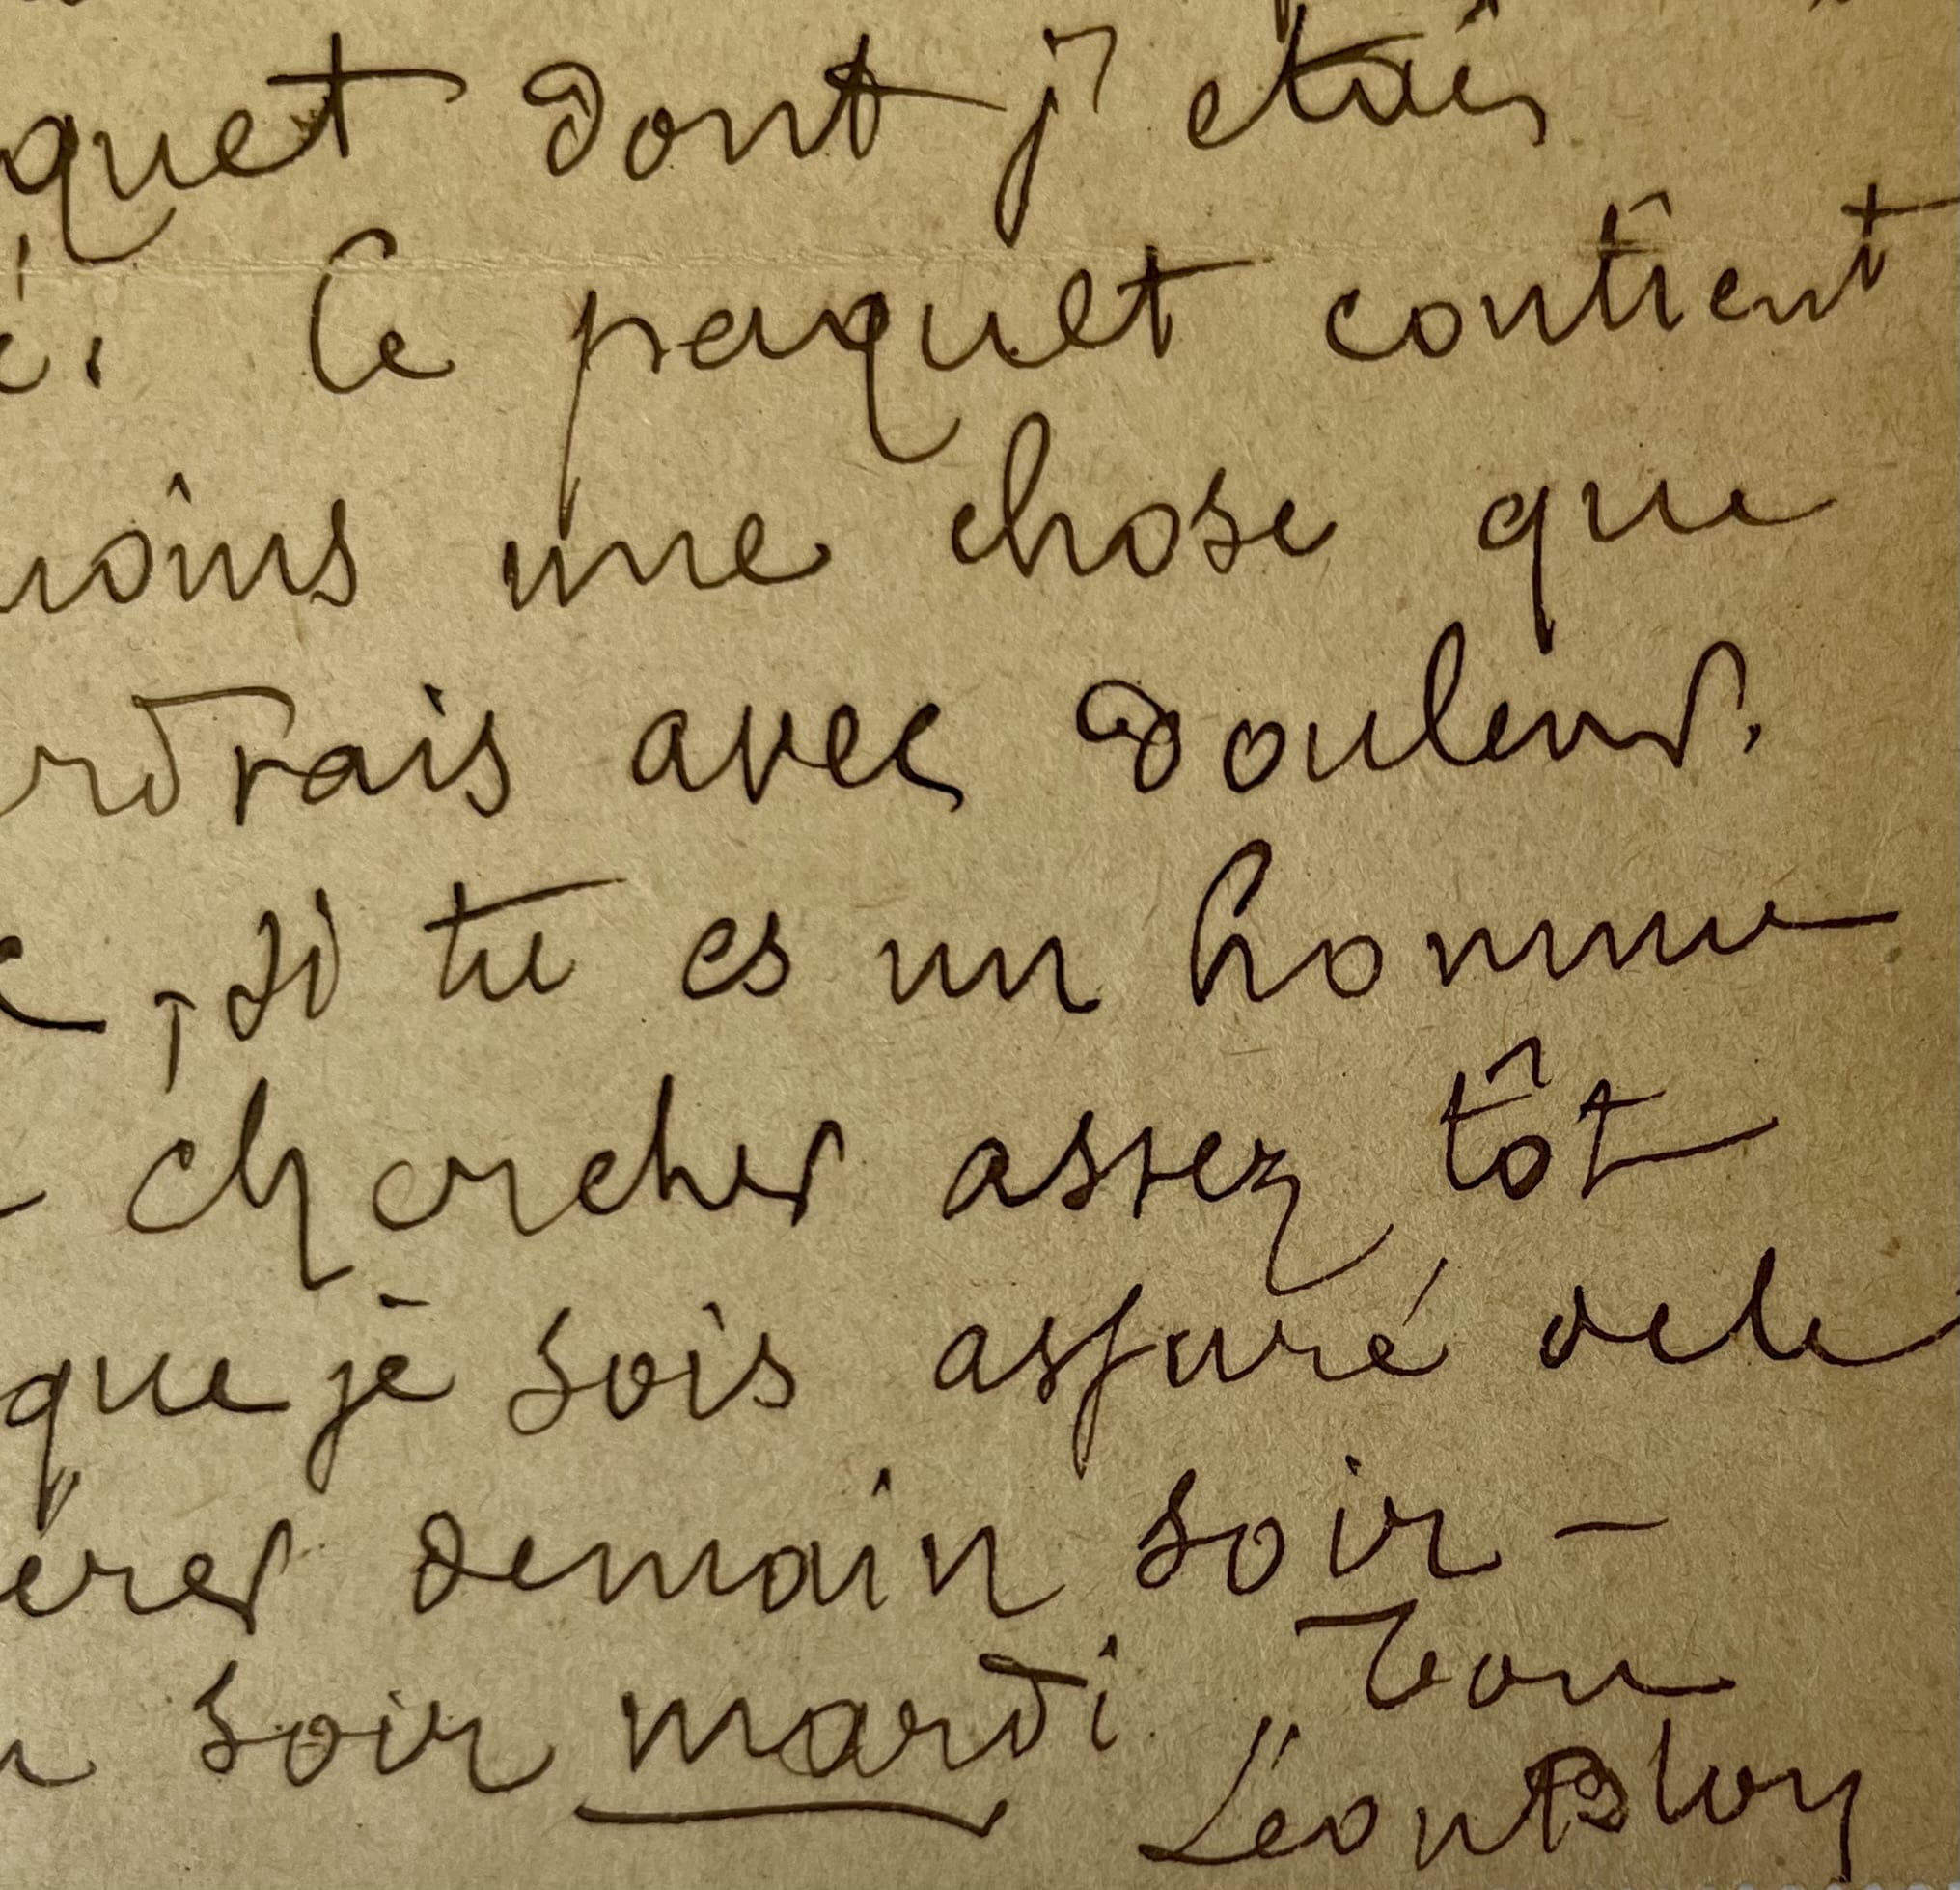 quet dont j'étais
é. Ce paquet contient
moins une chose que
rdrais avec douleur.
, si tu es un homme
chercher assez tôt
que je sois assuré de le
erer demain soir –
soir mardi. Ton
Léon Bloy